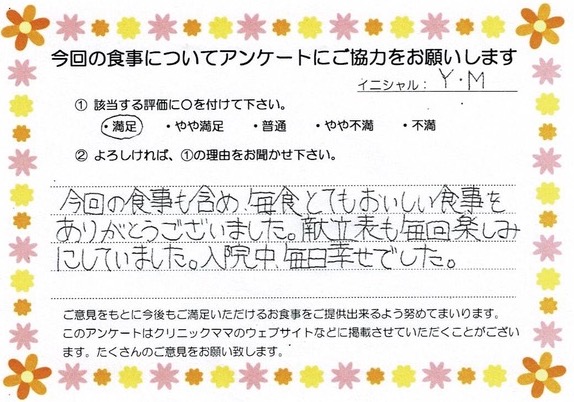 今回の食事についてアンケートにご協力をお願いします
イニシャル： Y・M
① 該当する評価に〇を付けて下さい。
・満足 ・やや満足 ・普通 ・やや不満 ・不満
② よろしければ、①の理由をお聞かせ下さい。
今回の食事も含め、毎食とてもおいしい食事を
ありがとうございました。献立表も毎回楽しみ
にしていました。入院中、毎日幸せでした。
ご意見をもとに今後もご満足いただけるお食事をご提供出来るよう努めてまいります。
このアンケートはクリニックママのウェブサイトなどに掲載させていただくことがござい
ます。たくさんのご意見をお願い致します。